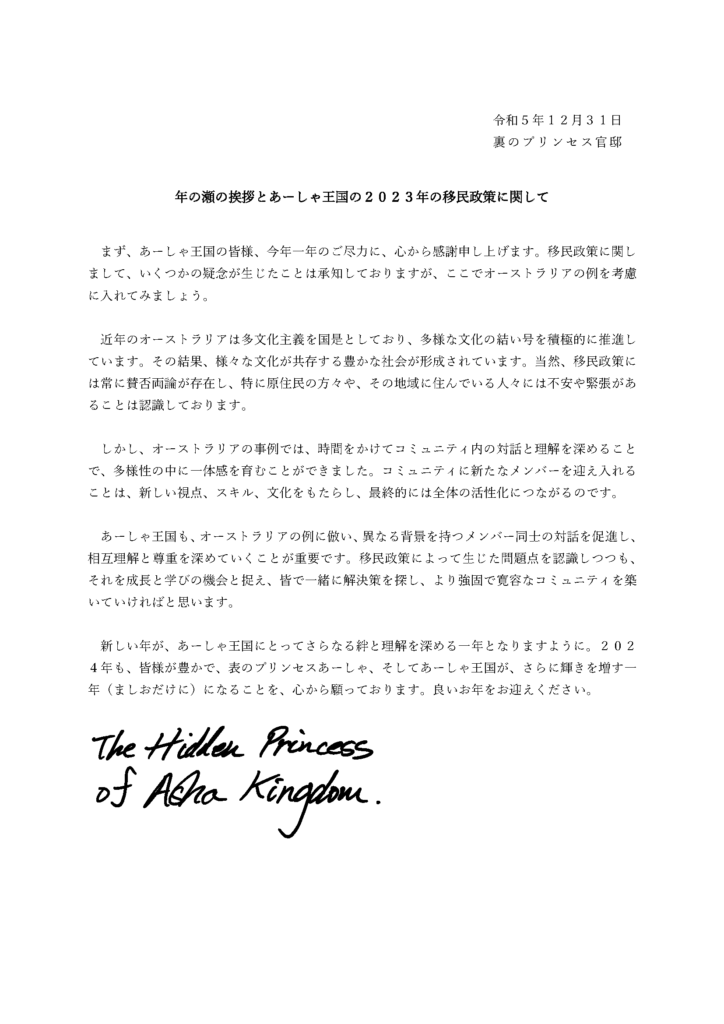 令和５年１２月３１日
裏のプリンセス官邸
年の瀬の挨拶とあーしゃ王国の２０２３年の移民政策に関して
まず、あーしゃ王国の皆様、今年一年のご尽力に、心から感謝申し上げます。移民政策に関し
まして、いくつかの疑念が生じたことは承知しておりますが、ここでオーストラリアの例を考慮
に入れてみましょう。
近年のオーストラリアは多文化主義を国是としており、多様な文化の結い号を積極的に推進し
ています。その結果、様々な文化が共存する豊かな社会が形成されています。当然、移民政策に
は常に賛否両論が存在し、特に原住民の方々や、その地域に住んでいる人々には不安や緊張があ
ることは認識しております。
しかし、オーストラリアの事例では、時間をかけてコミュニティ内の対話と理解を深めること
で、多様性の中に一体感を育むことができました。コミュニティに新たなメンバーを迎え入れる
ことは、新しい視点、スキル、文化をもたらし、最終的には全体の活性化につながるのです。
あーしゃ王国も、オーストラリアの例に倣い、異なる背景を持つメンバー同士の対話を促進し、
相互理解と尊重を深めていくことが重要です。移民政策によって生じた問題点を認識しつつも、
それを成長と学びの機会と捉え、皆で一緒に解決策を探し、より強固で寛容なコミュニティを築
いていければと思います。
新しい年が、あーしゃ王国にとってさらなる絆と理解を深める一年となりますように。２０２
４年も、皆様が豊かで、表のプリンセスあーしゃ、そしてあーしゃ王国が、さらに輝きを増す一
年（ましおだけに）になることを、心から願っております。良いお年をお迎えください。
The Hidden Princess
of Asha Kingdom.